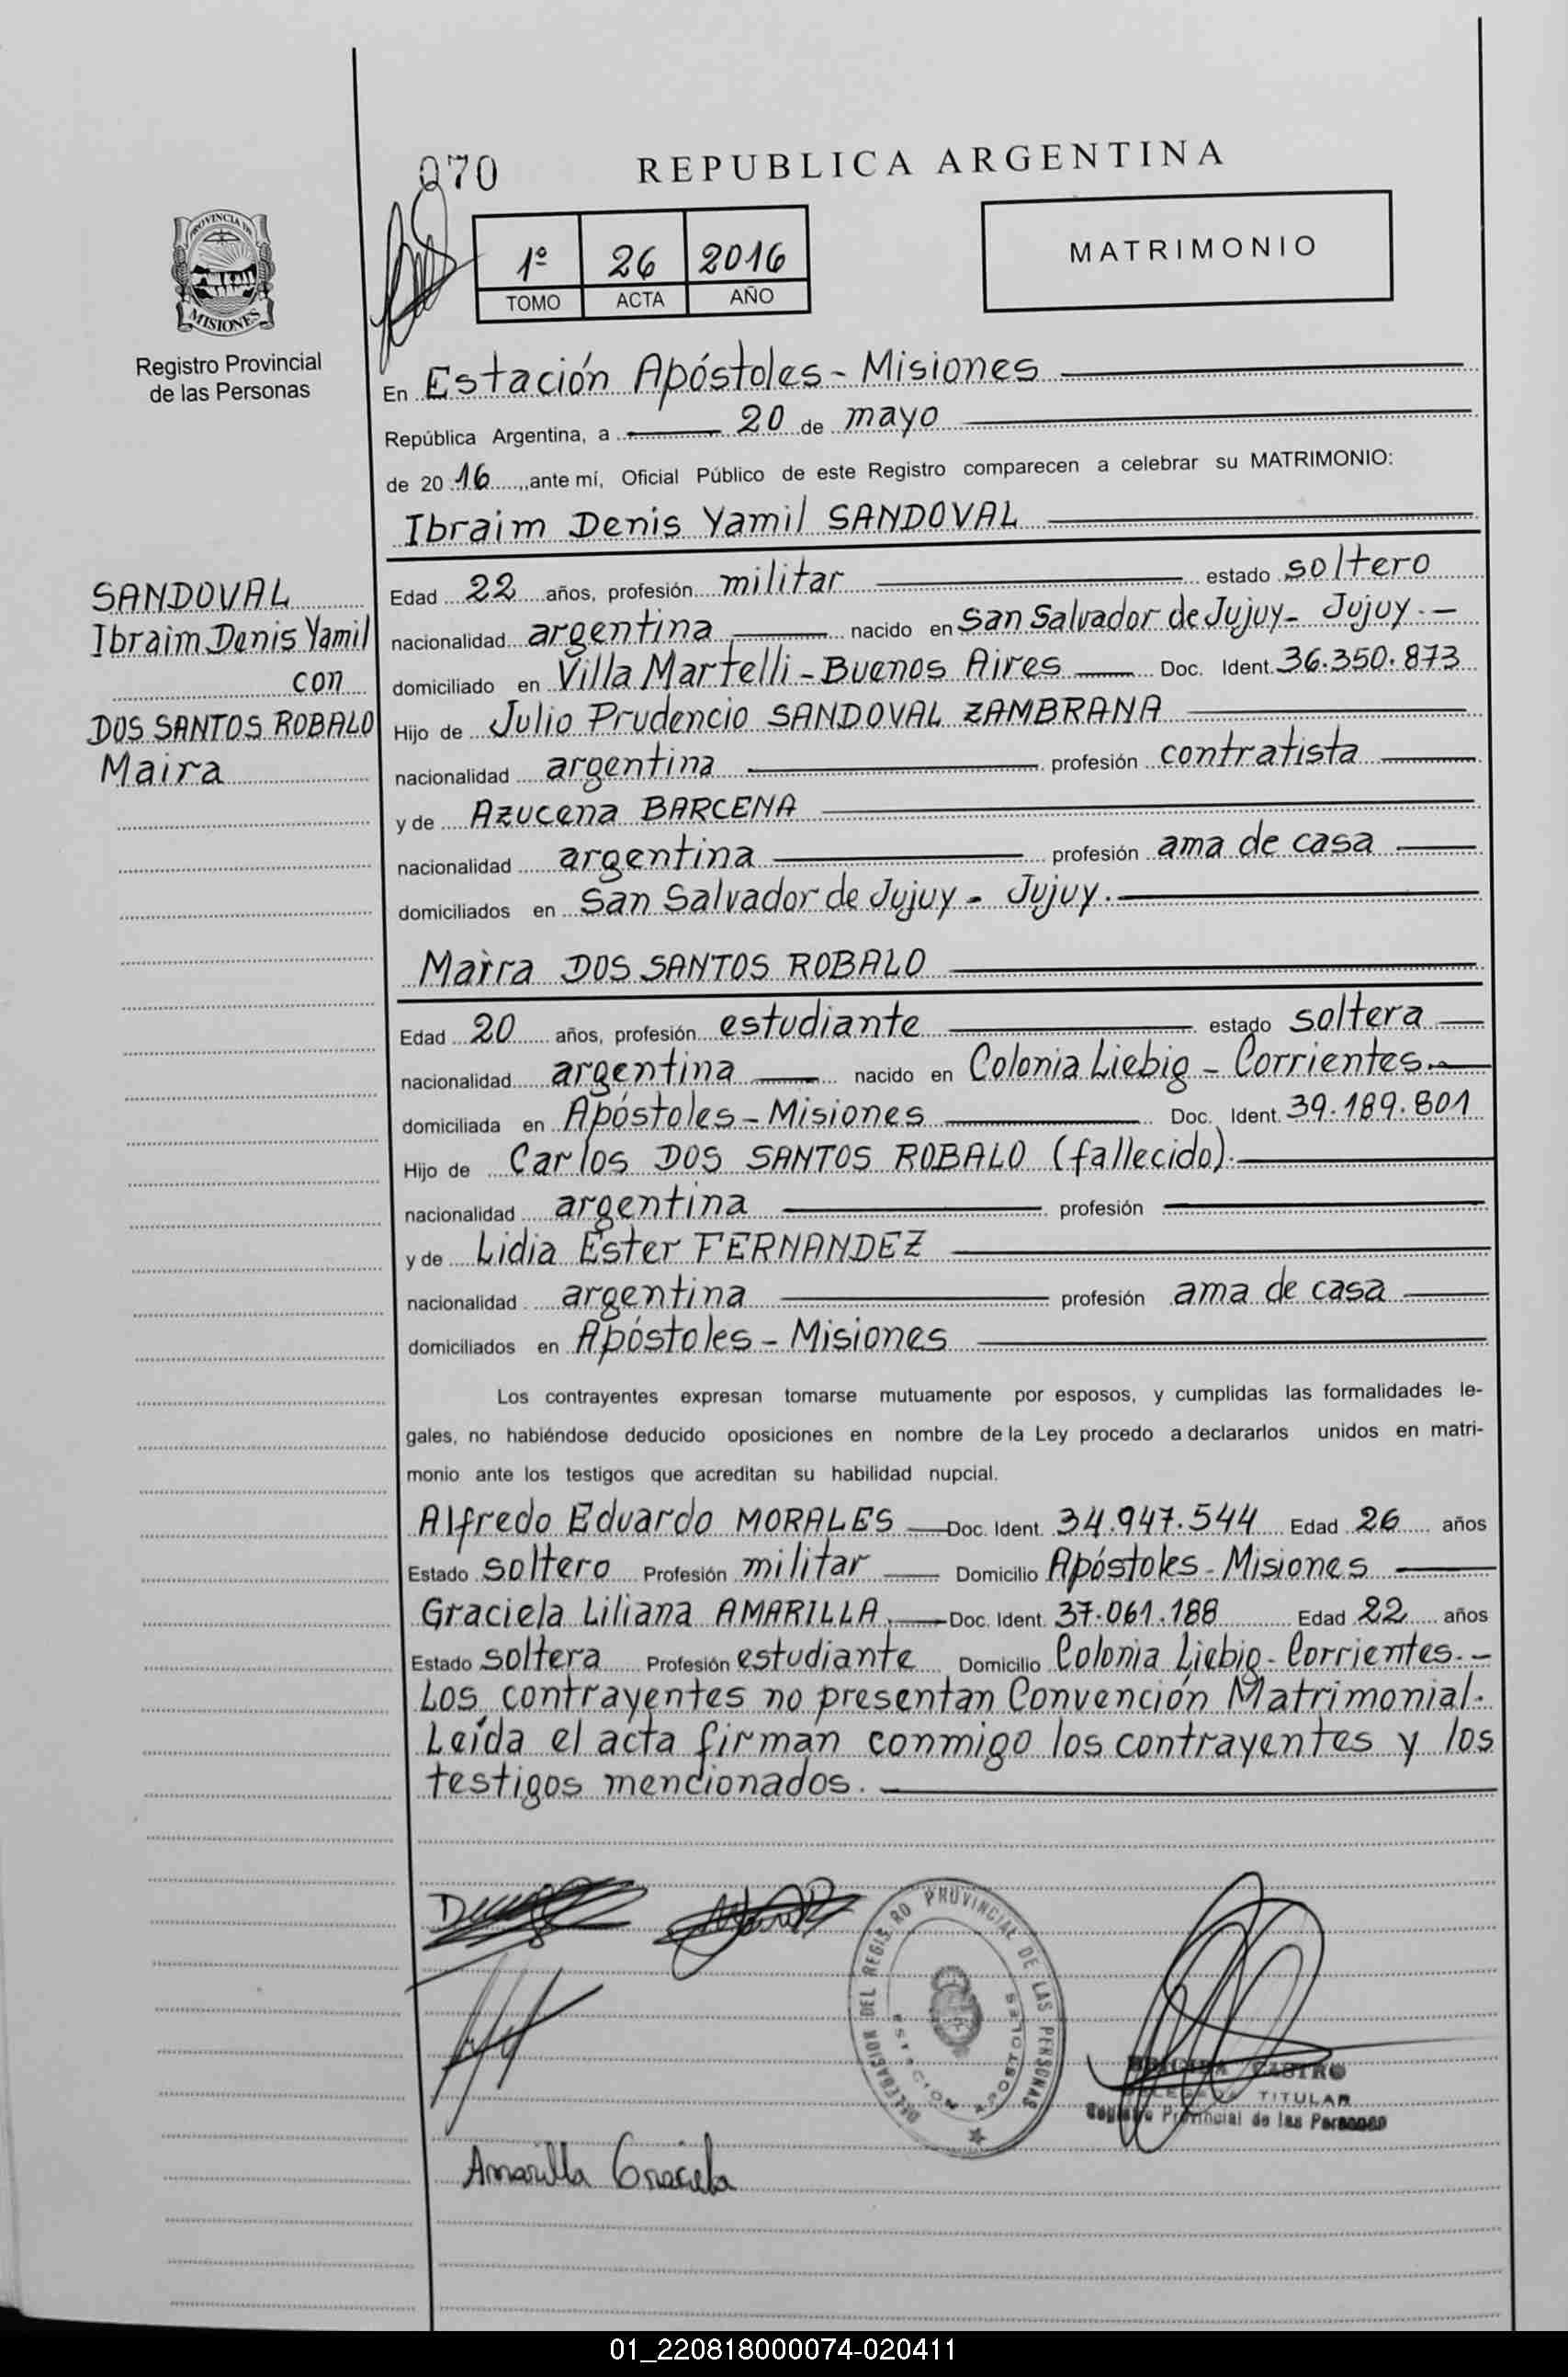 070
REPUBLICA ARGENTINA
PROVINCIA DE
MISIONES
Registro Provincial
de las Personas
1º 26 2016
TOMO ACTA AÑO
MATRIMONIO
En Estación Apóstoles - Misiones
República Argentina, a 20 de mayo
de 2016, ante mí, Oficial Público de este Registro comparecen a celebrar su MATRIMONIO:
Ibraim Denis Yamil SANDOVAL
SANDOVAL
Ibraim Denis Yamil
con
DOS SANTOS ROBALO
Maira
Edad 22 años, profesión militar estado soltero
nacionalidad argentina nacido en San Salvador de Jujuy - Jujuy.-
domiciliado en Villa Martelli - Buenos Aires Doc. Ident. 36.350.873
Hijo de Julio Prudencio SANDOVAL ZAMBRANA
nacionalidad argentina profesión contratista
y de Azucena BARCENA
nacionalidad argentina profesión ama de casa
domiciliados en San Salvador de Jujuy - Jujuy.
Maira DOS SANTOS ROBALO
Edad 20 años, profesión estudiante estado soltera
nacionalidad argentina nacido en Colonia Liebig - Corrientes.-
domiciliada en Apóstoles - Misiones Doc. Ident. 39.189.801
Hijo de Carlos DOS SANTOS ROBALO (fallecido).
nacionalidad argentina profesión
y de Lidia Ester FERNANDEZ
nacionalidad argentina profesión ama de casa
domiciliados en Apóstoles - Misiones
Los contrayentes expresan tomarse mutuamente por esposos, y cumplidas las formalidades le-
gales, no habiéndose deducido oposiciones en nombre de la Ley procedo a declararlos unidos en matri-
monio ante los testigos que acreditan su habilidad nupcial.
Alfredo Eduardo MORALES Doc. Ident. 34.947.544 Edad 26 años
Estado soltero Profesión militar Domicilio Apóstoles - Misiones
Graciela Liliana AMARILLA. Doc. Ident. 37.061.188 Edad 22 años
Estado soltera Profesión estudiante Domicilio Colonia Liebig - Corrientes.-
Los contrayentes no presentan Convención Matrimonial.
Leída el acta firman conmigo los contrayentes y los
testigos mencionados.
DELEGACION DEL REGISTRO PROVINCIAL DE LAS PERSONAS
ESTACION APOSTOLES
CASTRO
DELEGADA TITULAR
Registro Provincial de las Personas
Amarilla Graciela
01_220818000074-020411